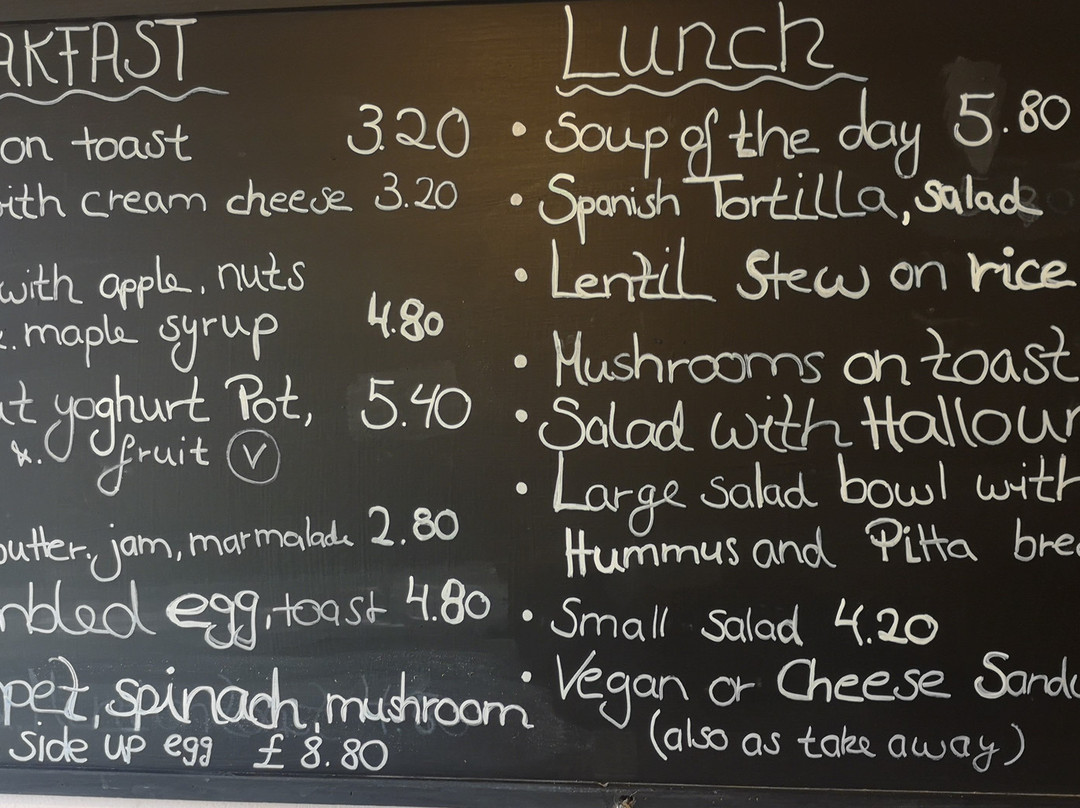 AKFAST
on toast 3.20
ith cream cheese 3.20
with apple, nuts
&. maple syrup 4.80
at yoghurt Pot, 5.40
&. fruit V
butter, jam, marmalade 2.80
mbled egg, toast 4.80
pet, spinach, mushroom
side up egg £8.80
Lunch
• Soup of the day 5.80
• Spanish Tortilla, salad
• Lentil Stew on rice
• Mushrooms on toast
• Salad with Halloum
• Large salad bowl with
Hummus and Pitta brea
• Small salad 4.20
• Vegan or Cheese Sandw
(also as take away)